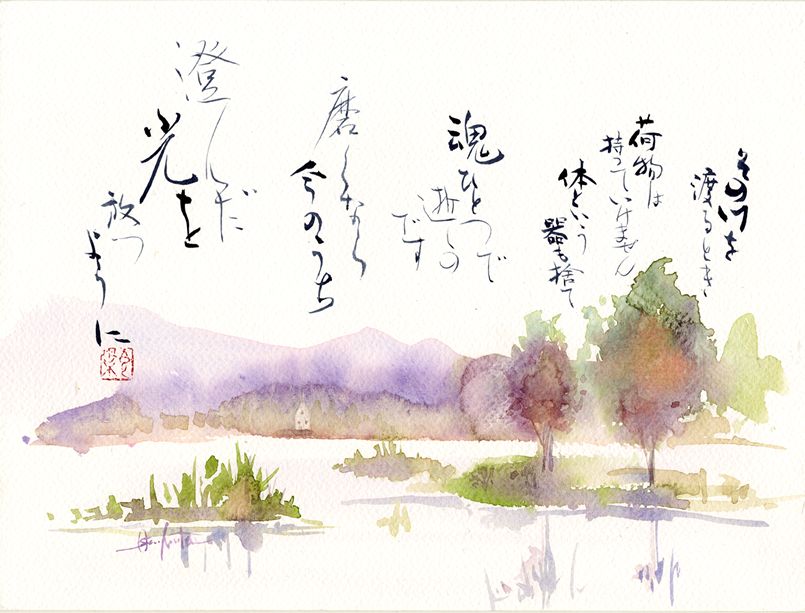 その川を
渡るとき
荷物は
持っていけません
体という
器も捨て
魂ひとつで
逝くの
です
磨くなら
今のうち
澄んだ
光を
放つ
ように